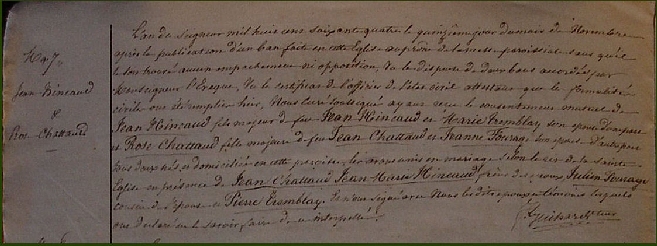 N.o 7.
Jean Hincaud
&
Rose Chattaud
L'an du seigneur mil huit cent soixante quatre le quinzième jour du mois de Novembre
après la publication d'un ban faite en cette Eglise au prône de la messe paroissiale sans qu'il
se soit trouvé aucun empêchement ni opposition, vu la dispense de deux bans accordée par
Monseigneur l'Evêque, vu le certificat de l'officier de l'état civil attestant que les formalités
civiles ont été remplies hier, Nous Curé soussigné ayant reçu le consentement mutuel de
Jean Hincaud fils majeur de feu Jean Hincaud et Marie Tremblay son épouse
et Rose Chattaud fille majeure de feu Jean Chattaud et Jeanne Fourage son épouse d'autre part
tous deux nés et domiciliés en cette paroisse, les avons unis en mariage selon le rit de la sainte
Eglise en présence de Jean Chattaud, Jean Marie Hincaud, frères des époux Julien Fourage
cousin de l'épouse et Pierre Tremblay
ont déclaré ne le savoir faire de ce interpellés.